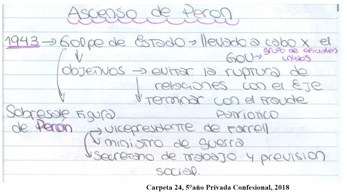 Ascenso de Perón
1943 → Golpe de Estado → llevado a cabo x el
GOU → grupo de oficiales
unidos
objetivos → evitar la ruptura de
relaciones con el Eje
→ terminar con el Fraude
Patriotico
Sobresale Figura
de Perón
vicepredente de Farrell
ministro de guerra
Secretario de trabajo y prevision
social.
Carpeta 24, 5°año Privada Confesional, 2018